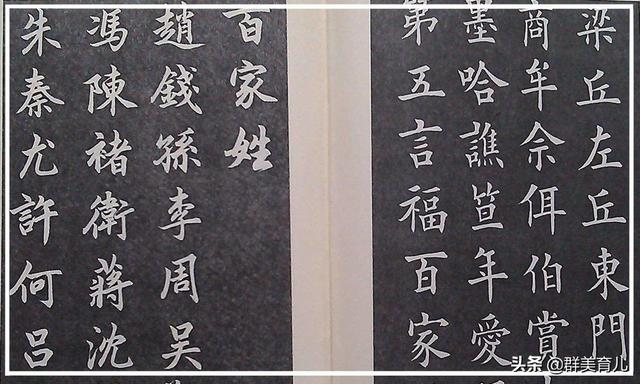 梁丘左丘東門
商牟佘佴伯賞
墨哈譙笪年愛
第五言福百家
百家姓
趙錢孫李周吳
馮陳褚衛蔣沈
朱秦尤許何呂
头条 @群美育儿